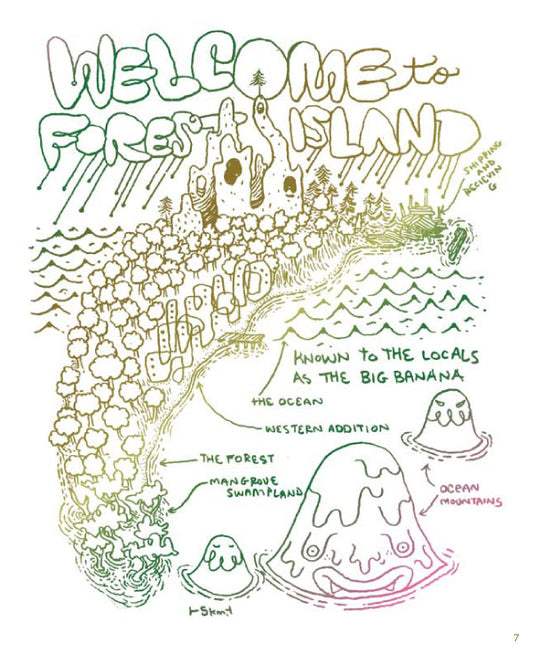 WELCOME to
FOREST ISLAND
SHIPPING
AND
RECIEVIN
G
KNOWN TO THE LOCALS
AS THE BIG BANANA
THE OCEAN
WESTERN ADDITION
THE FOREST
MANGROVE
SWAMPLAND
OCEAN
MOUNTAINS
7